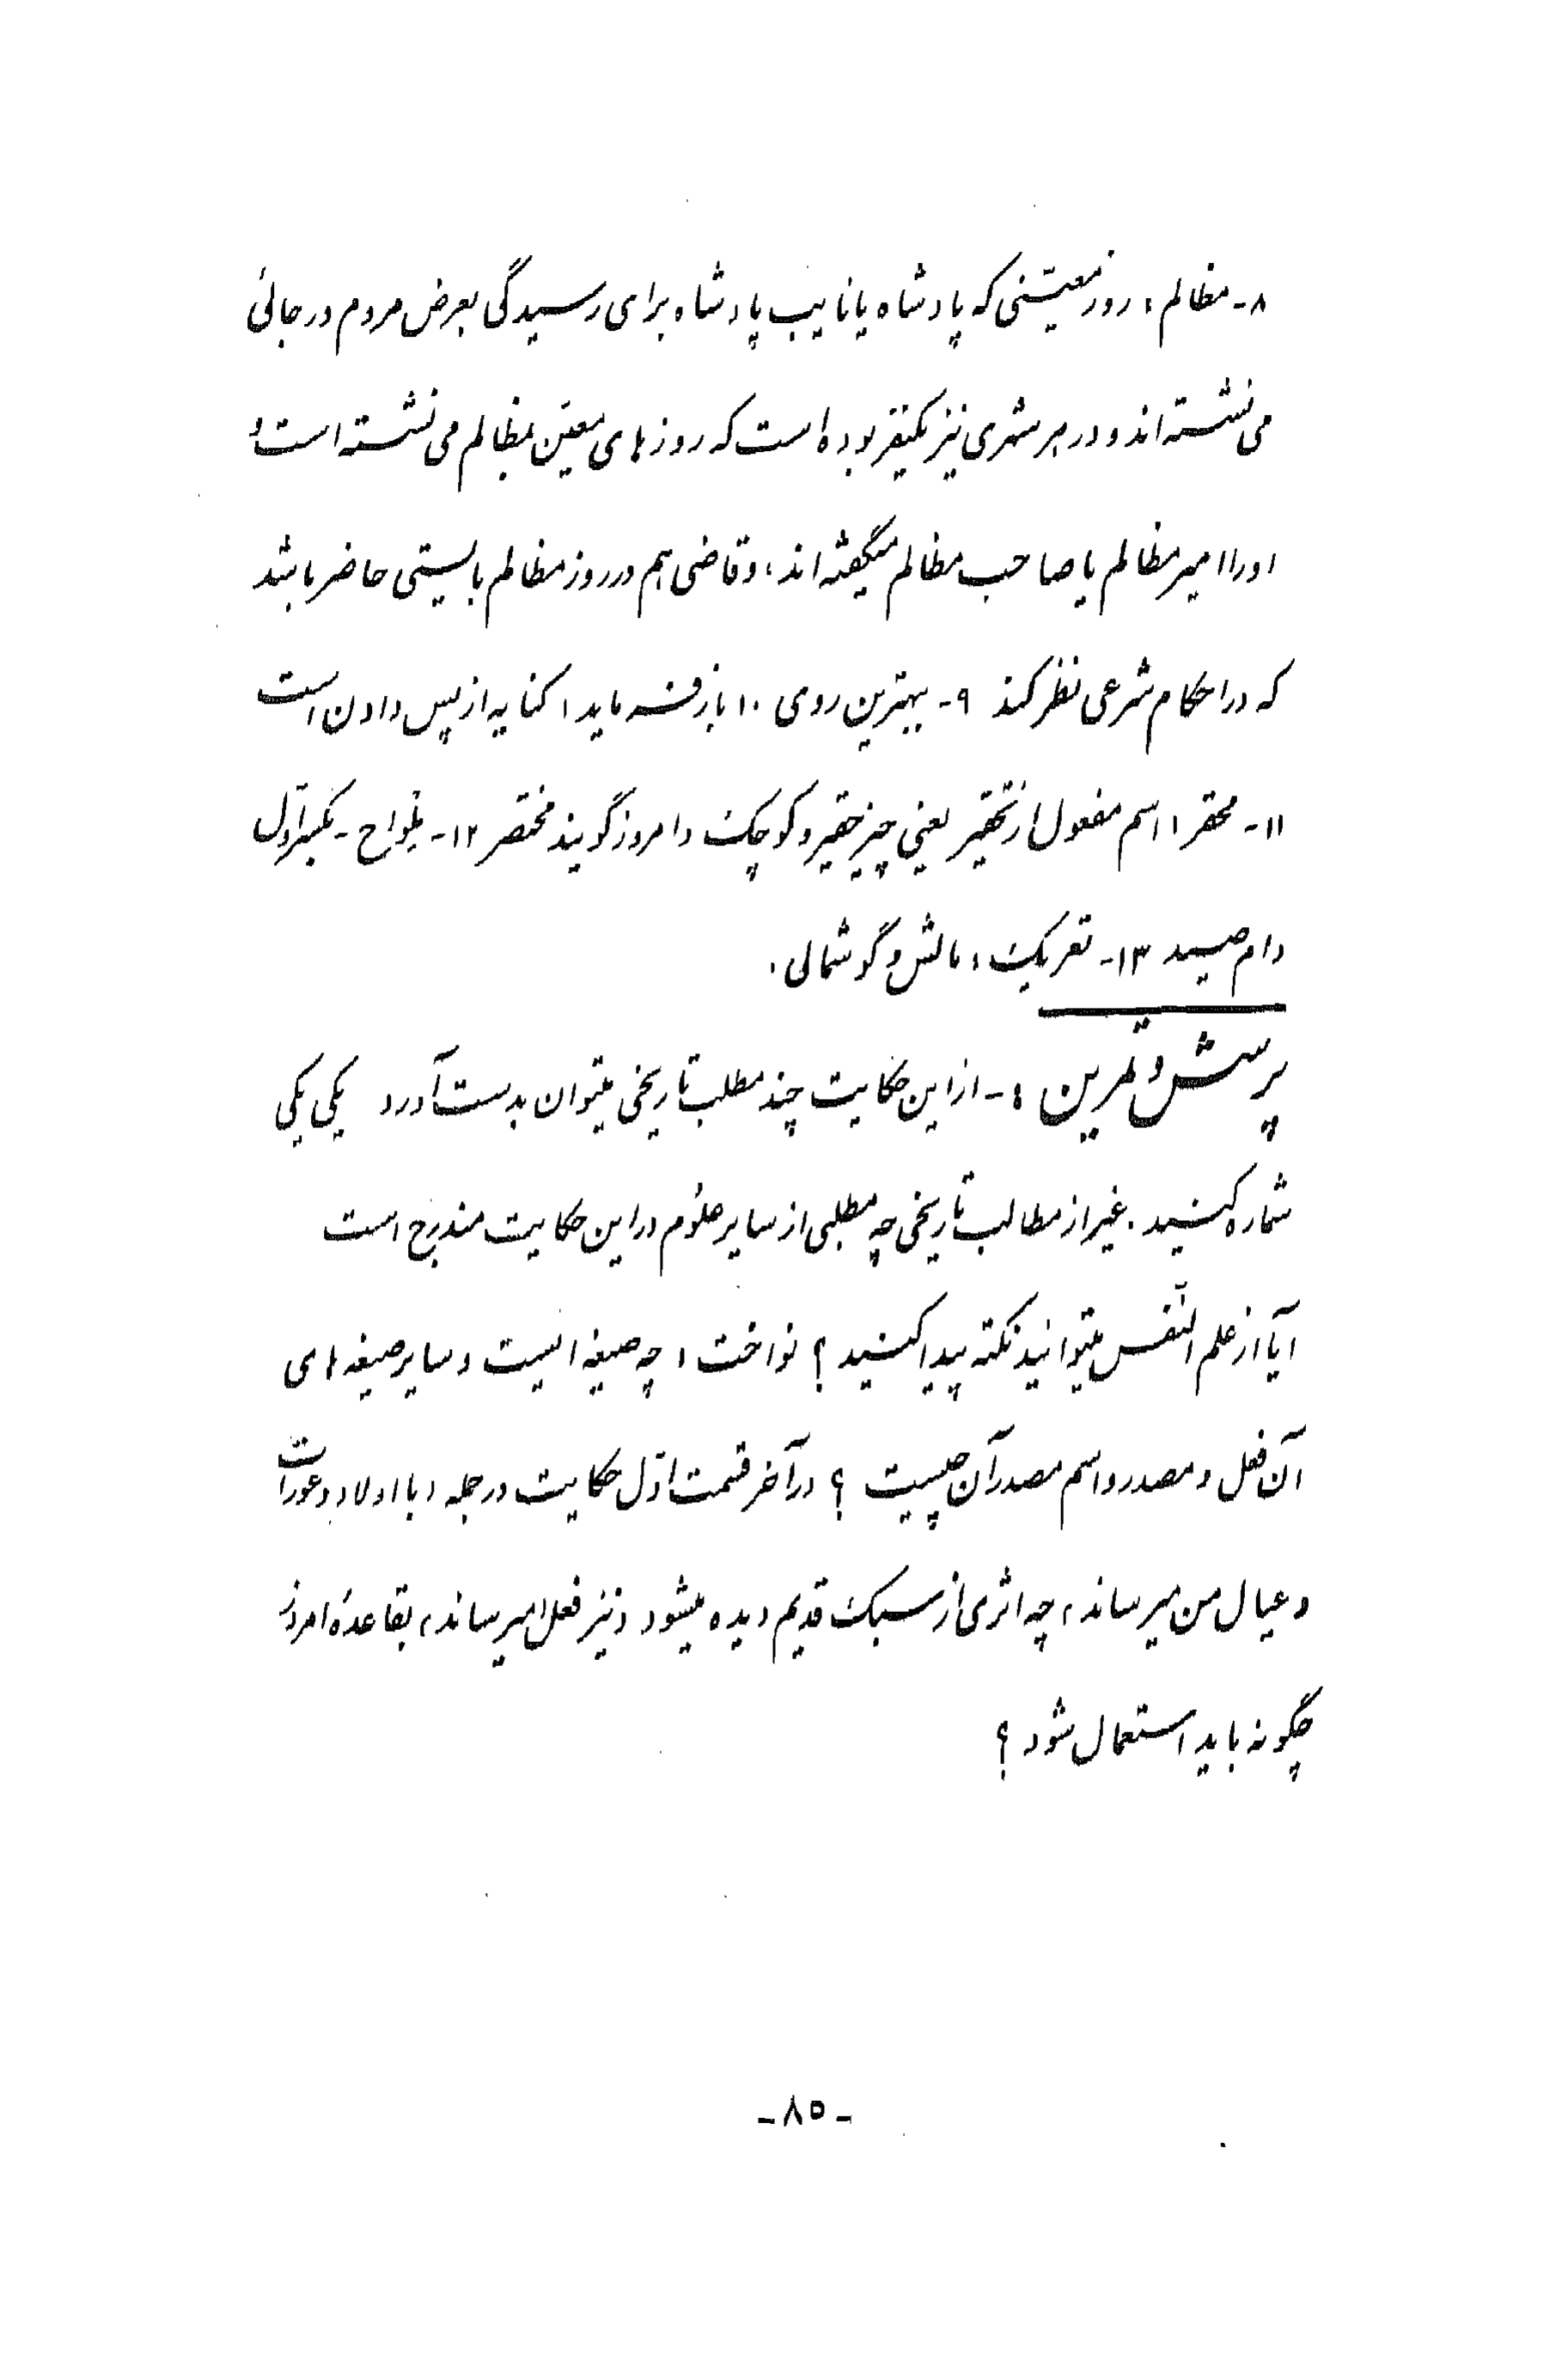 ۸- مظالم : روز معیّنی که پادشاه یا نایب پادشاه برای رسیدگی بعرض مردم در جائی
می‌نشسته‌اند و در هر شهری نیز یکنفر بوده است که روزهای معیّن بمظالم می‌نشسته است و
او را امیر مظالم یا صاحب مظالم میگفته‌اند، و قاضی هم در روز مظالم بایستی حاضر باشد
که در احکام شرعی نظر کند ۹- بهترین روی ۱۰ بازفرماید ، کنایه از پس دادن است
۱۱- محقر ، اسم مفعول از تحقیر یعنی چیز حقیر و کوچک و امروز گویند مختصر ۱۲- بلواح - بکسر اوّل
دام صید ۱۳- تعریک ، مالش و گوشمالی .
پرسش و تمرین : - از این حکایت چند مطلب تاریخی میتوان بدست آورد یکی یکی
شماره کنید . غیر از مطالب تاریخی چه مطلبی از سایر علوم در این حکایت مندرج است
آیا از علم النّفس میتوانید نکته پیدا کنید ؟ نواخت ، چه صیغه ایست و سایر صیغه‌های
آن فعل و مصدر و اسم مصدر آن چیست ؟ در آخر قسمت اوّل حکایت در جمله «با اولاد و عورات
و عیال من میرساند» چه اثری از سبک قدیم دیده میشود و نیز فعل «میرساند» بقاعدهٔ امروز
چگونه باید استعمال شود ؟
-۸۵-